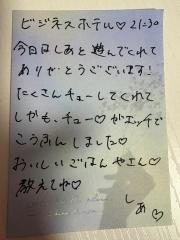 ビジネスホテル♡ 21:30
今日はしあと遊んでくれて
ありがとうございます!
たくさんチューしてくれて
しかも、チュー♡がエッチで
こうふんしました♡
おいしいごはんやさん♡
教えてね♡
しあ♡